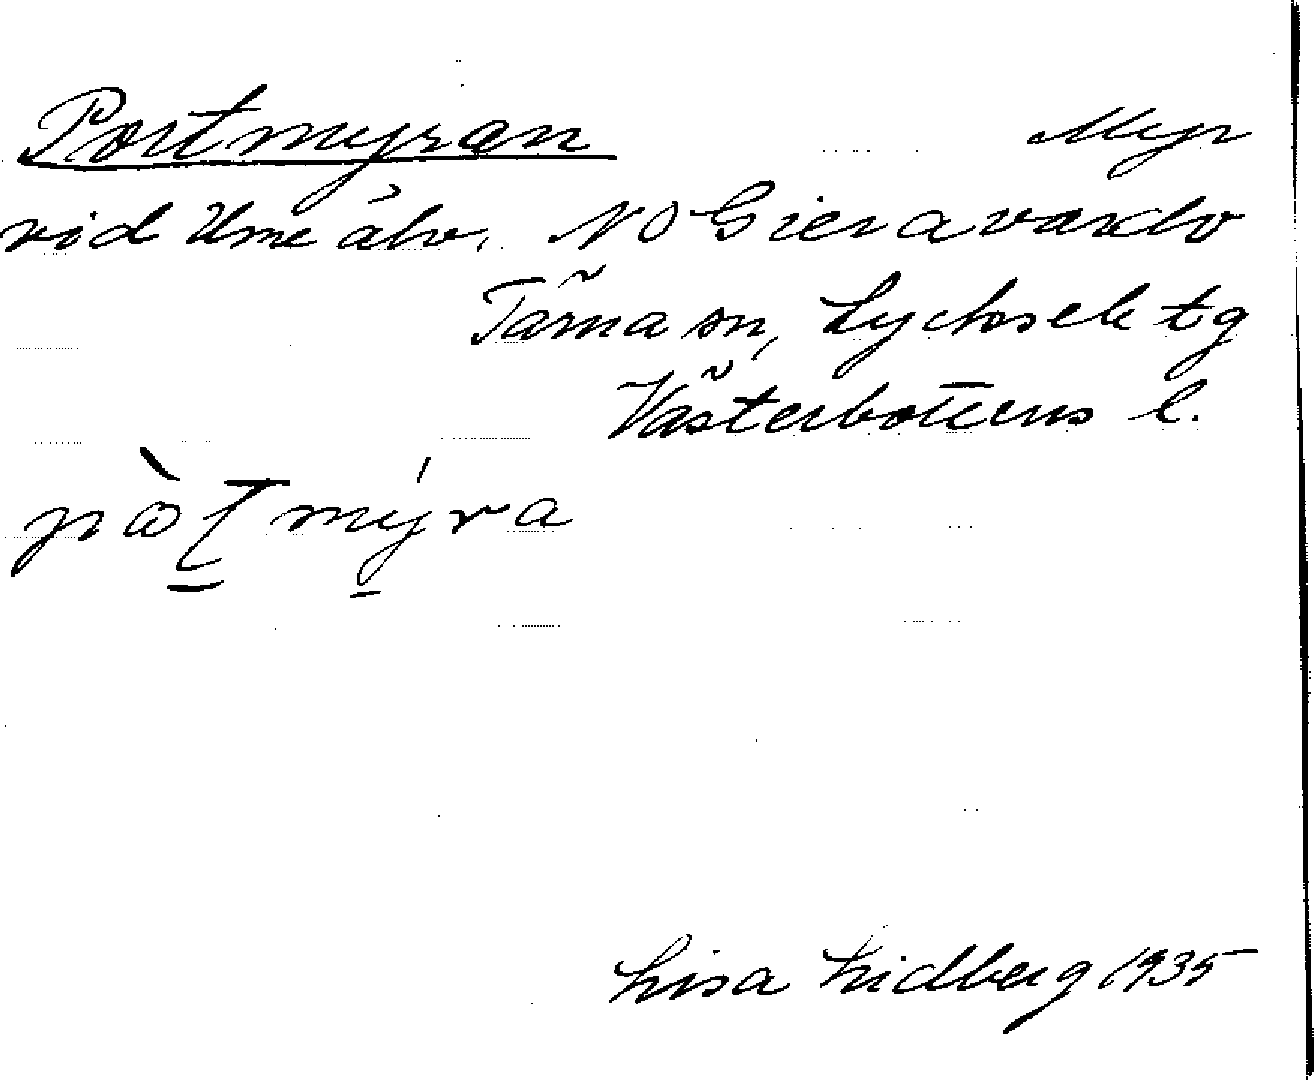 Portmyran Myr
vid Ume älv. NO Gieravardo
Tärna sn, Lycksele tg
Västerbottens l.
Lisa Lidberg 1935